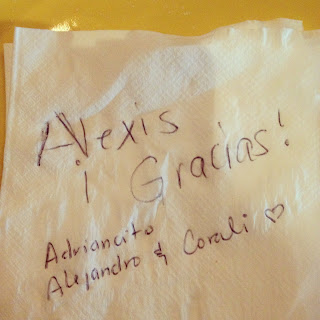 Alexis
¡ Gracias!
Adriancito
Alejandro & Corali ♡